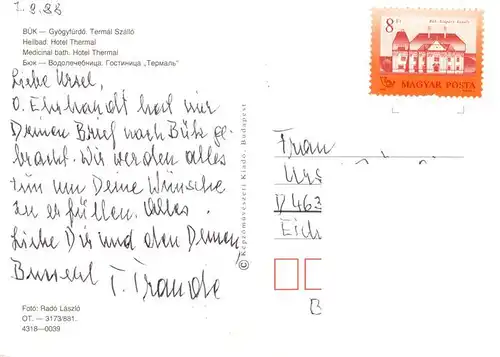 1.9.88
BÜK — Gyógyfürdő. Termál Szálló
Heilbad. Hotel Thermal
Medicinal bath. Hotel Thermal
Бюк — Водолечебница. Гостиница „Термаль"
Liebe Ursel,
O. Ehrhardt hat mir
Deinen Brief nach Bük ge-
bracht. Wir werden alles
tun um Deine Wünsche
zu erfüllen. Alles
Liebe Dir und den Deinen,
T. Traude
Fotó: Radó László
OT. — 3173/881.
4318—0039
© Képzőművészeti Kiadó, Budapest
8 Ft
MAGYAR POSTA
Frau
Urs
D 463
Eich
B